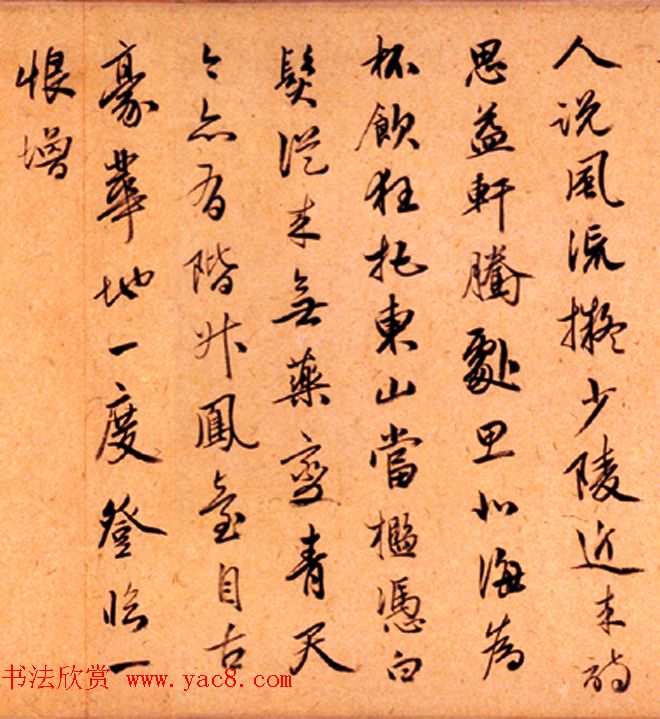 人说風流擬少陵近来詩
思益軒騰思北海為
杯飲狂托東山當檻憑白
髮從来無藥變青天
今亦有階升鳳臺自古
豪華地一度登临一
恨增
书法欣赏 www.yac8.com